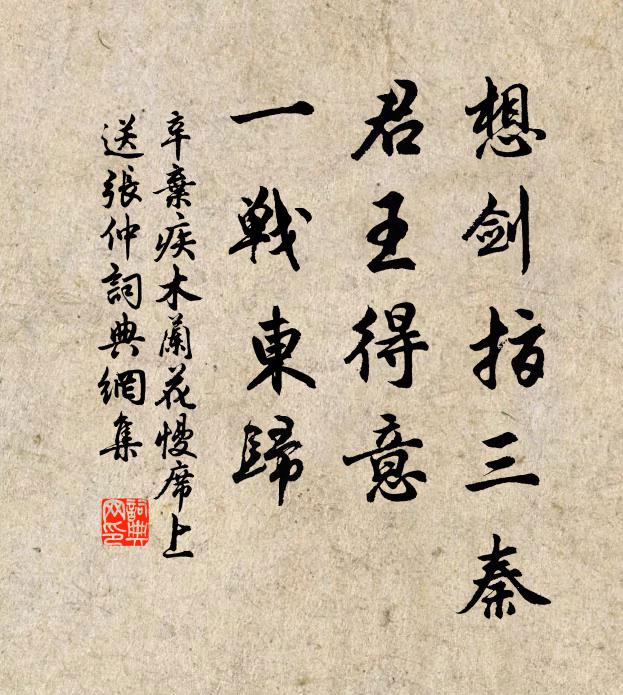 想劍指三秦
君王得意
一戰東歸
辛棄疾木蘭花慢席上
送張仲詞典網集
詞典
网印